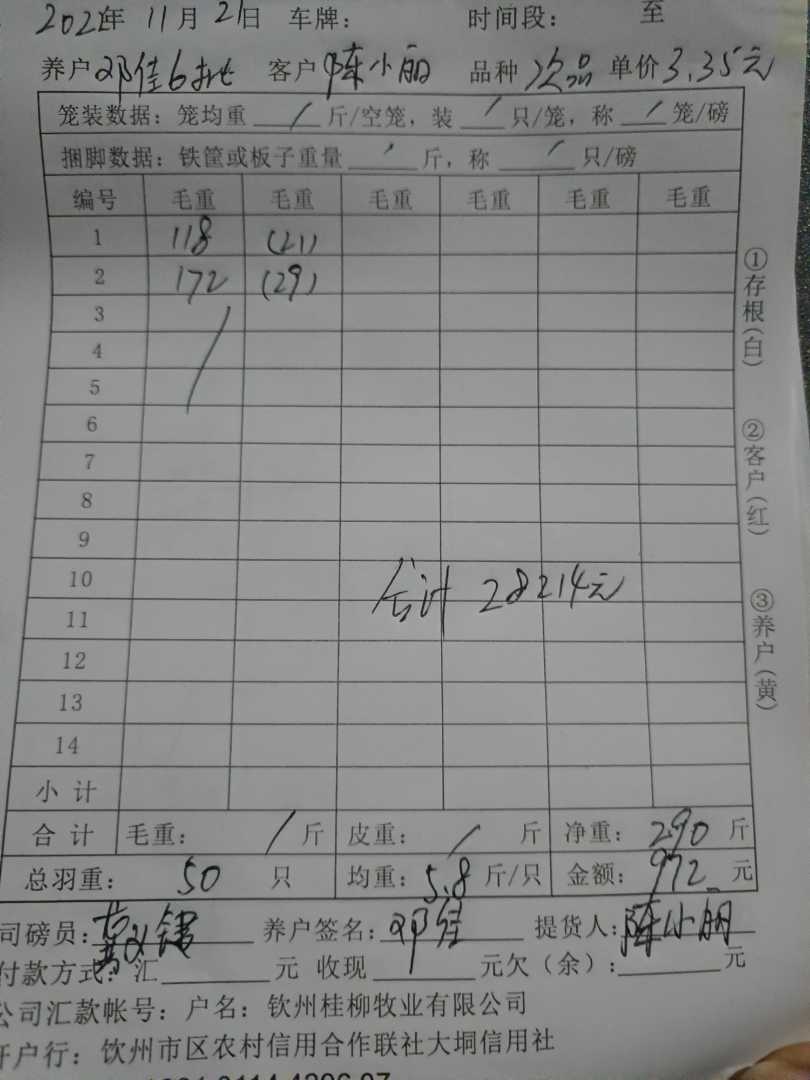 2021年 11月 21日 车牌： 时间段： 至
养户 邓佳6批 客户 陈小丽 品种 次品 单价 3.35元
笼装数据：笼均重 / 斤/空笼，装 / 只/笼，称 / 笼/磅
捆脚数据：铁筐或板子重量 / 斤，称 / 只/磅
编号 毛重 毛重 毛重 毛重 毛重 毛重
1 118 (21)
2 172 (29)
3
4
5
6
7
8
9
10
合计 28214元
11
12
13
14
小计
合计 毛重： / 斤 皮重： / 斤 净重： 290 斤
总羽重： 50 只 均重： 5.8 斤/只 金额： 972 元
司磅员： 养户签名： 邓佳 提货人： 陈小丽
付款方式：汇 元 收现 元欠（余）： 元
公司汇款帐号：户名：钦州桂柳牧业有限公司
开户行：钦州市区农村信用合作联社大垌信用社
①存根（白）
②客户（红）
③养户（黄）